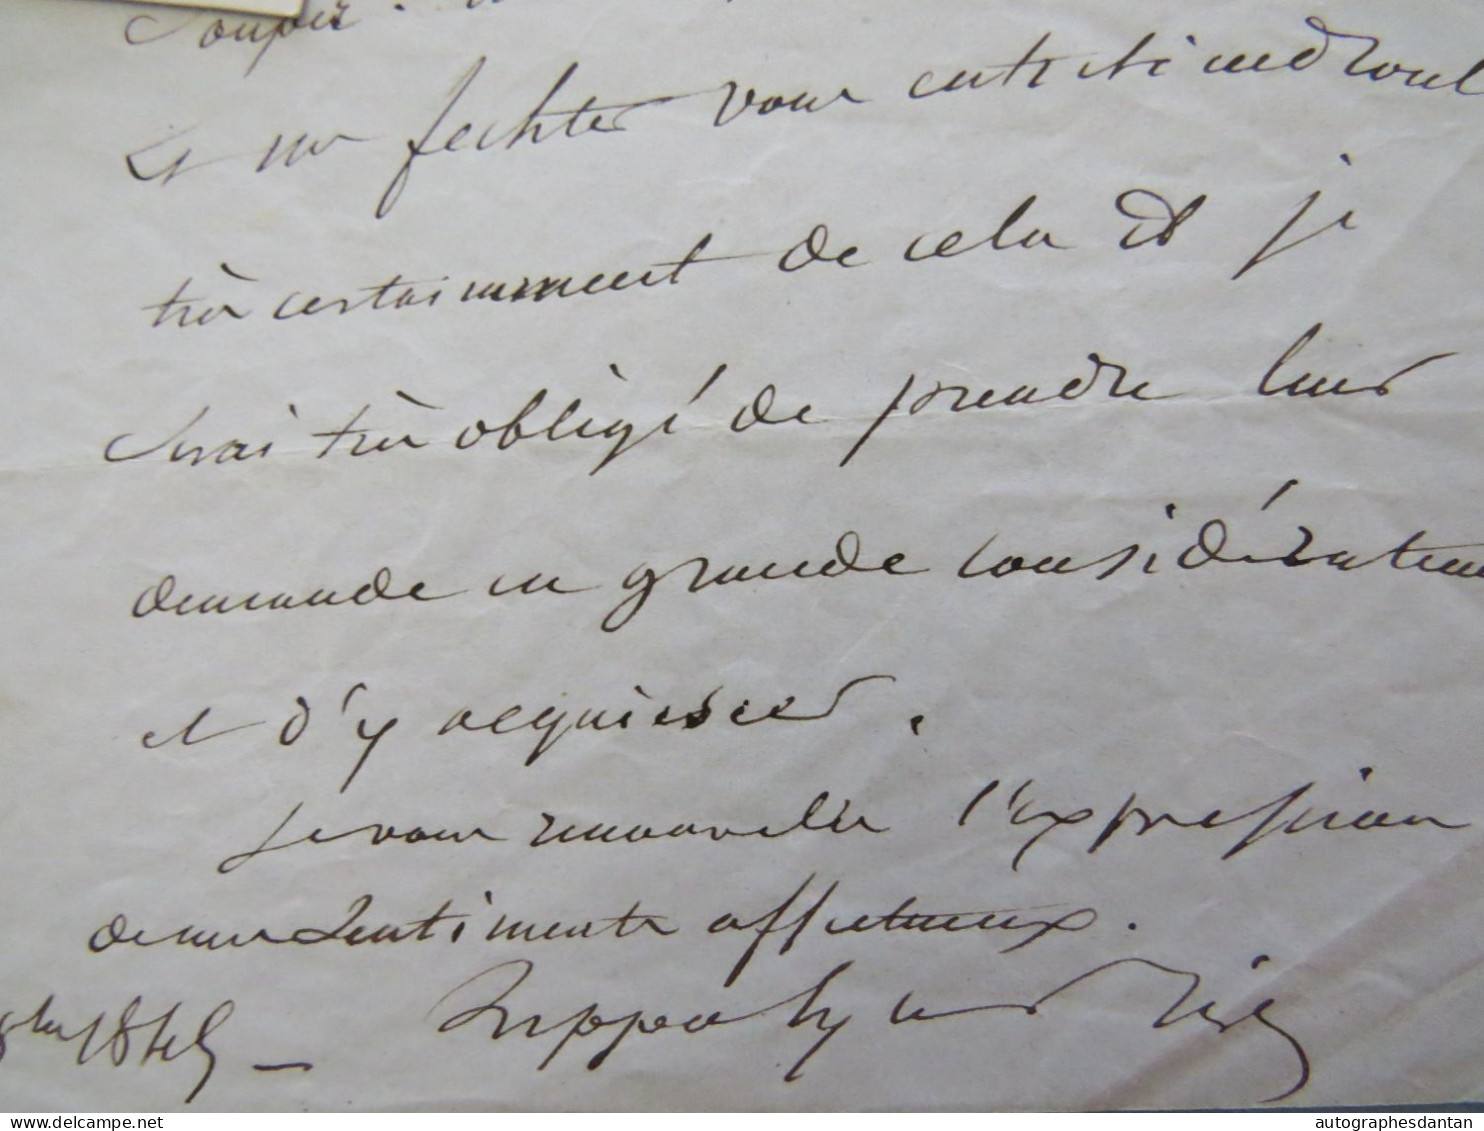 Souper.
et mr fechter vous entretiendront
très certainement de cela Et je
serai très obligé de prendre leur
demande en grande considération
et d'y acquiescer.
Je vous renouvelle l'expression
de mes sentiments affectueux.
8bre 1845 _ hippolyte
delcampe.net
autographesdantan